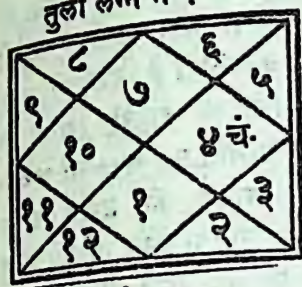 तुला लग्न
८ ६
९ ७ ५
१० ४ चं.
११ १ ३
१२ २